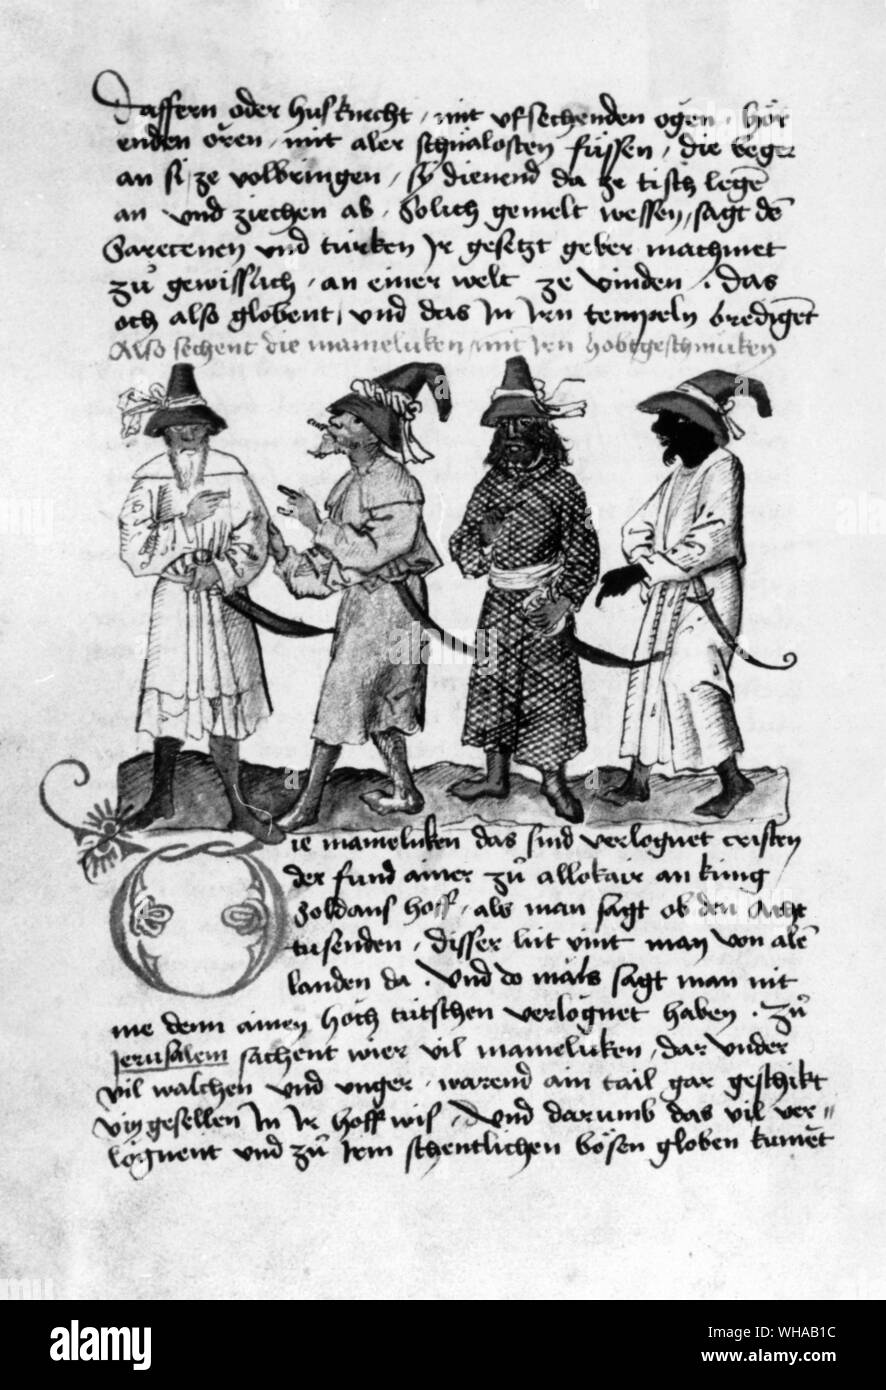 Dassern oder husknecht / mit ufsechenden ogen / hör
enden oren / mit aler schnalosten füssen / die beger
an si ze volbringen / sy dienend da ze tisch legen
an und ziechen ab / Solich gemelt wessen / sagt de
Sarecenen und türken Ir gesetzt geber machmet
zu gewisslich / an einer welt ze vinden / das
och also globent / und das In Irn tempeln bredigent
Also sechent die mameluken / mit Irn hobtgeschmuken
ie mameluken das sind verlognet cristen
der fund ainer zu allokair an küng
Soldans hoff / als man sagt ob den
tusenden / disser lüt vint man von alen
landen da . Und do mals sagt man nit
me denn ainen hoch tütschen verlögnet haben . Zu
Jerusalem sachent wier vil mameluken / dar under
vil walchen und unger / warend ain tail gar geschikt
gesellen In Ir hoff wis / Und darumb das vil ver=
lögnent und zu irem schentlichen bösen globen kument
alamy
Image ID: WHAB1C
www.alamy.com